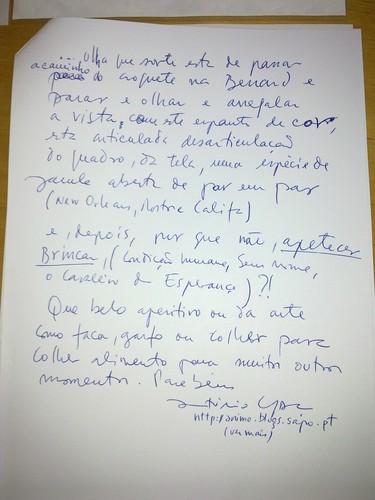 ... olha que sorte esta de passar
a caminho do croquete na Benard e
parar e olhar e arregalar
a vista, com este espanto de cor,
esta articulada desarticulação
do quadro, da tela, uma espécie de
janela aberta de par em par
(New Orleans, Mostra Califa)
e, depois, por que não, apetecer
Brincar, (Condição humana, Sem nome,
o Carteiro da Esperança)?!
Que belo aperitivo ou da arte
como faca, garfo ou colher para
colher alimento para muitos outros
momentos. Parabéns
http://animo.blogs.sapo.pt
(ver mais)